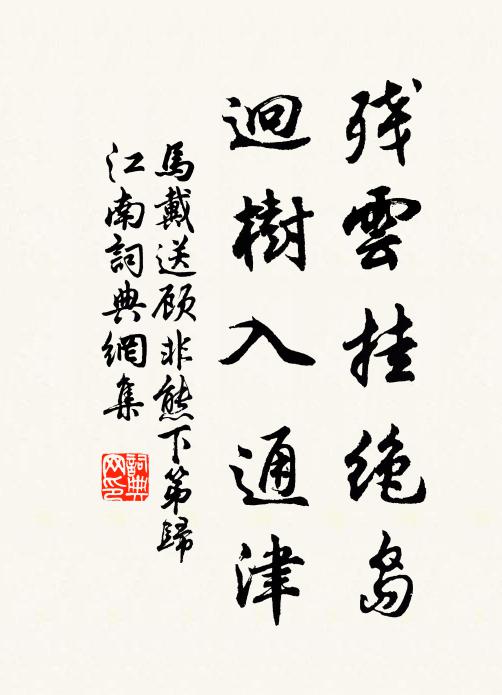 残雲挂绝岛
迴樹入通津
馬戴送顾非熊下第歸
江南詞典網集
詞典
网印